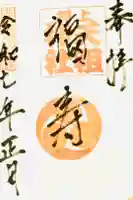 奉拝
福
寿
令和七年正月